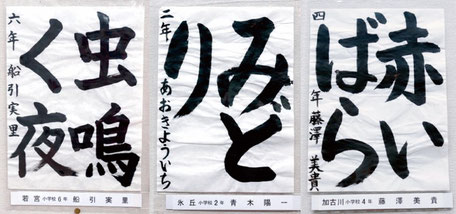 虫鳴
く夜
六年 船引実里
若宮小学校6年 船引実里
みど
り
二年 あおきよういち
氷丘小学校2年 青木陽一
赤い
ばら
四年 藤澤美貴
加古川小学校4年 藤澤美貴